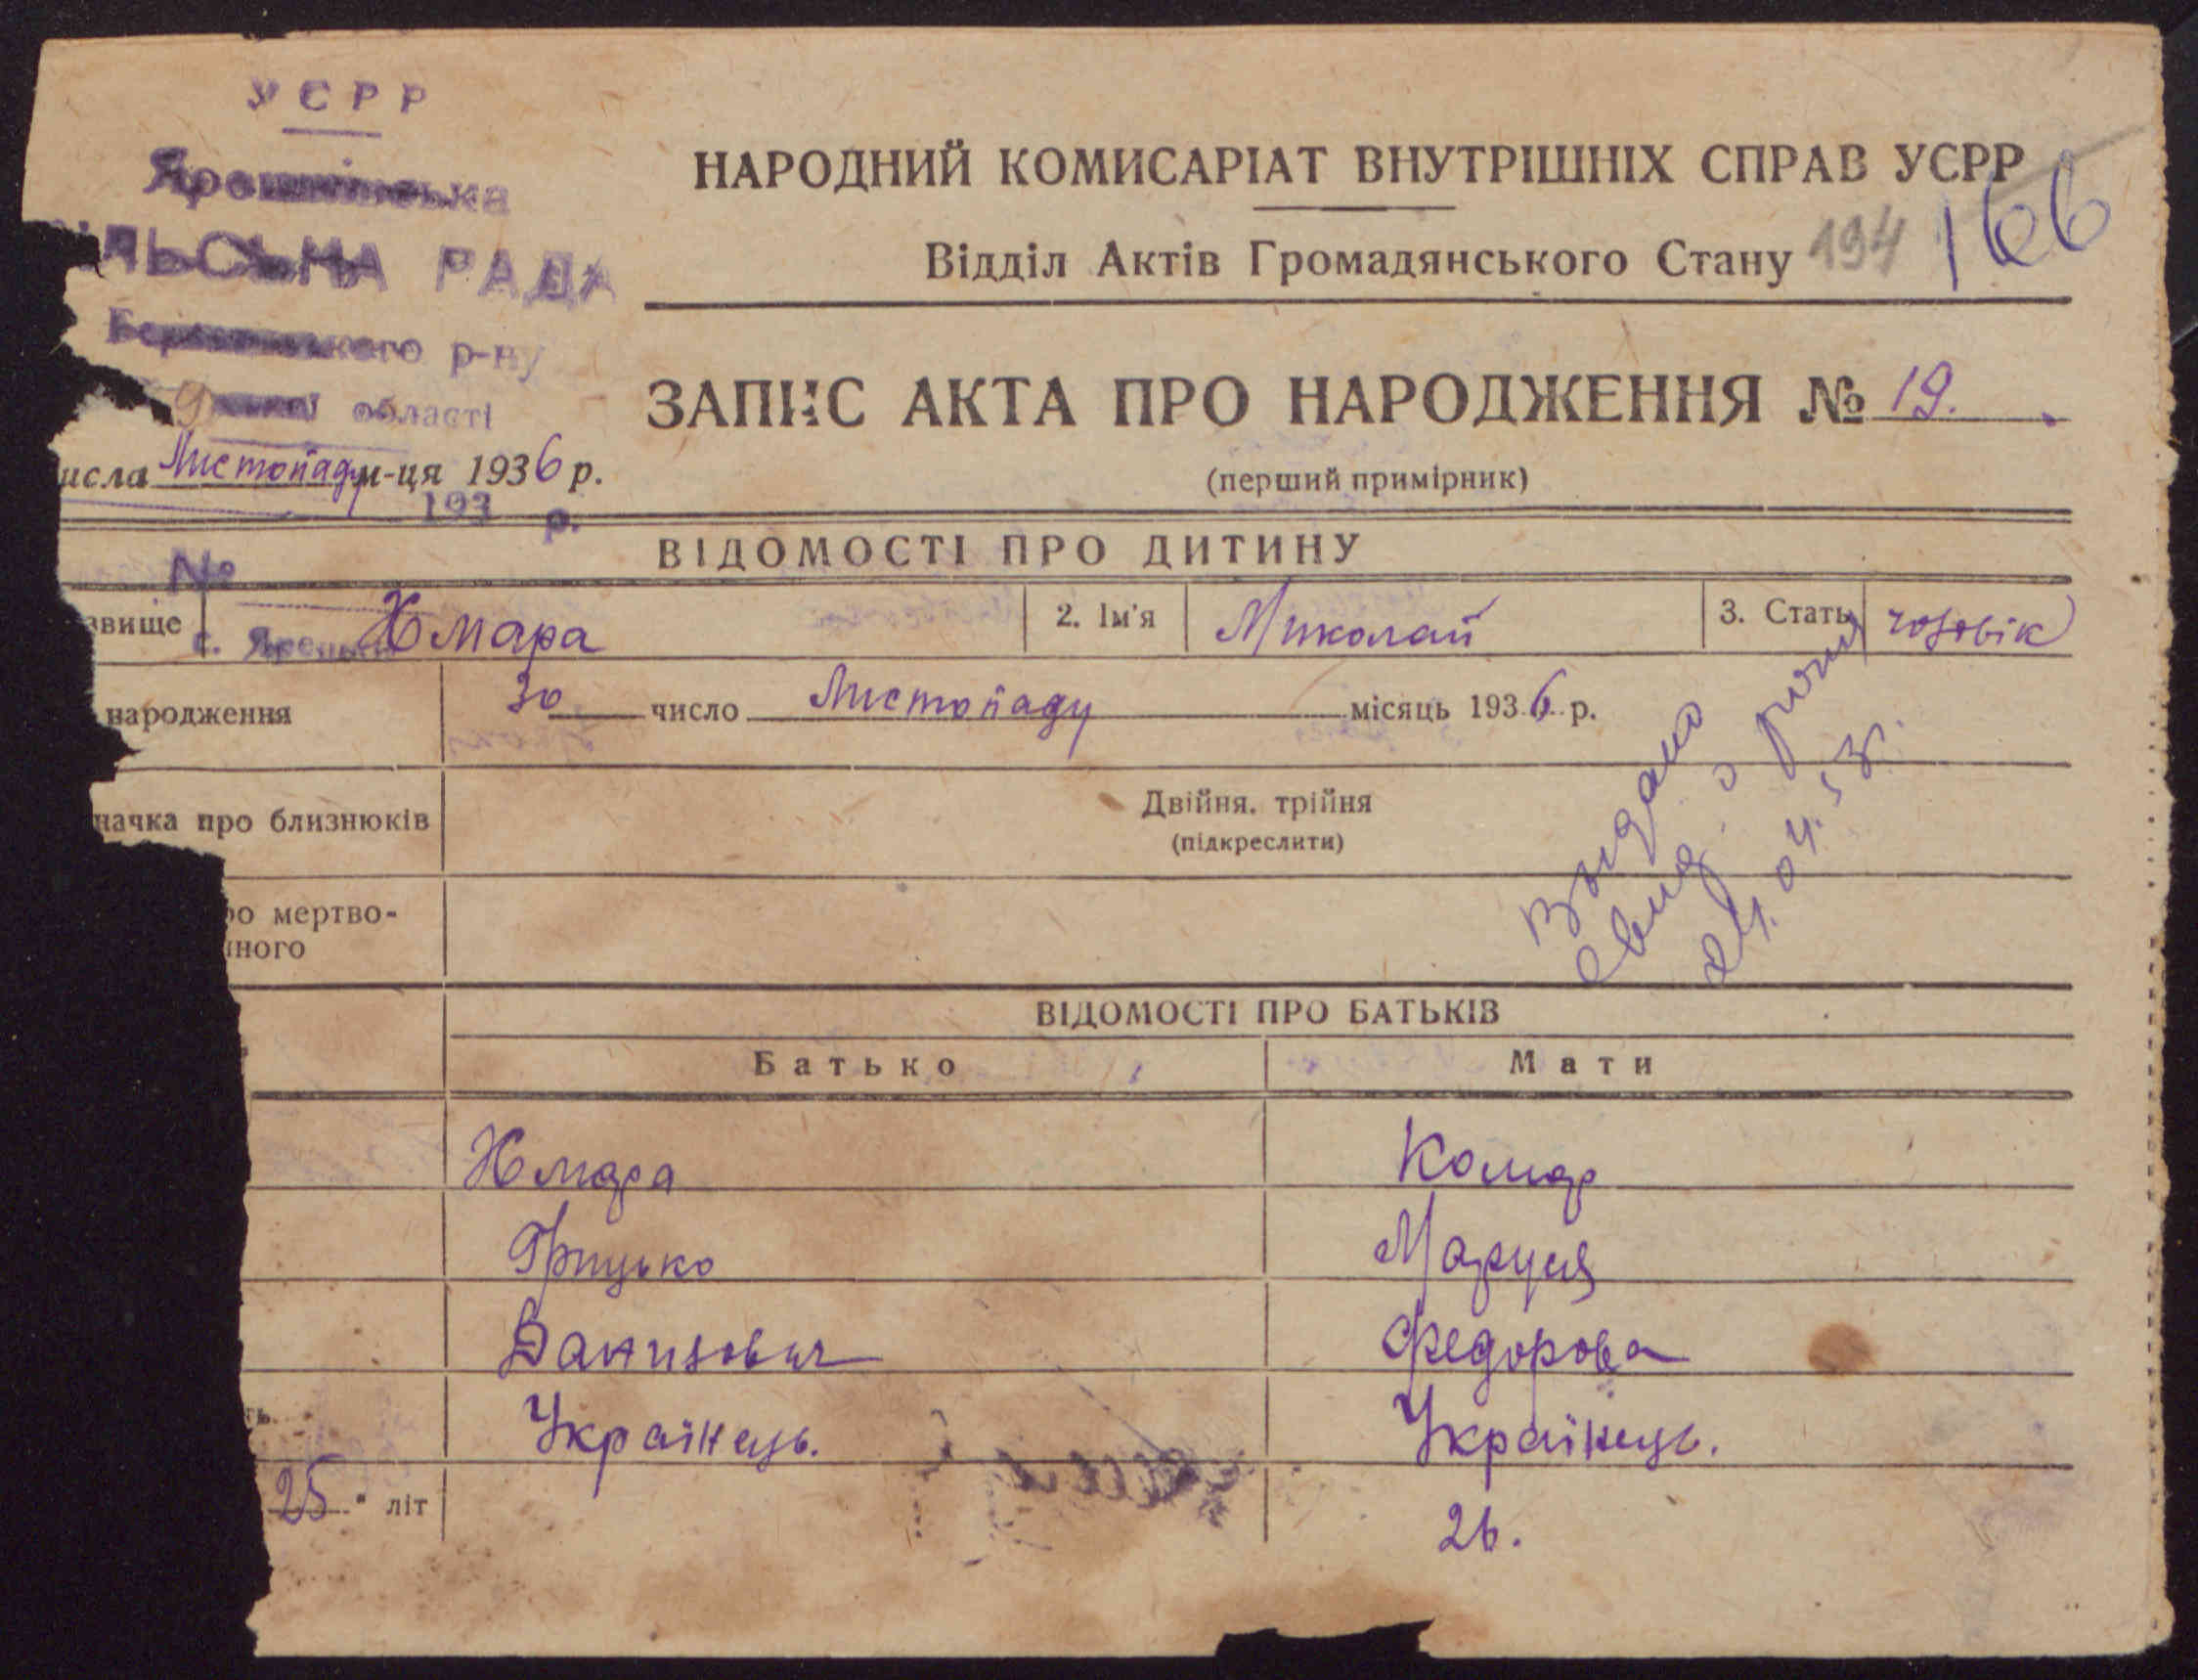 УСРР
ІЛЬСЬКА РАДА
кого р-ну
області
исла Листопаду м-ця 1936 р.
193 р.
№
НАРОДНИЙ КОМИСАРІАТ ВНУТРІШНІХ СПРАВ УСРР
Відділ Актів Громадянського Стану 194 166
ЗАПИС АКТА ПРО НАРОДЖЕННЯ № 19.
(перший примірник)
ВІДОМОСТІ ПРО ДИТИНУ
звище Хмара 2. Ім'я Миколай 3. Стать чоловік
народження 30 число Листопаду місяць 1936 р.
начка про близнюків Двійня, трійня
(підкреслити)
ро мертво-
ного
Выдано
свид. о рожд
24.04.53г.
ВІДОМОСТІ ПРО БАТЬКІВ
Батько Мати
Хмара Комар
Грицько Маруся
Данилович Федорова
ть Українець. Українець.
25 літ 26.